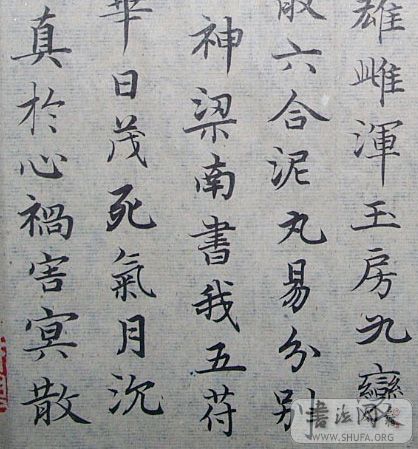 雄雌渾玉房九變
散六合泥丸易分別
神梁南書我五符
華日茂死氣月沉
真於心禍害冥散
書法网
WWW.SHUFA.ORG